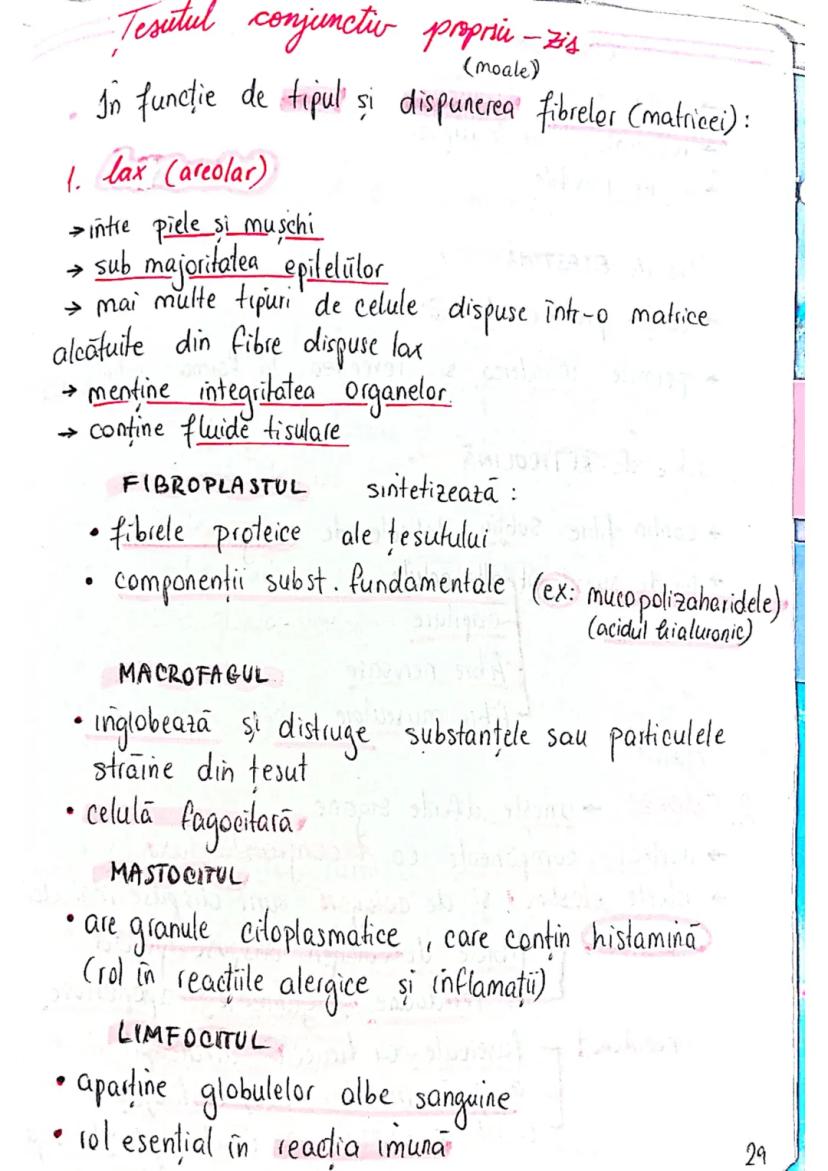 Țesutul conjunctiv propriu-zis
(moale)
În funcție de tipul și dispunerea fibrelor (matricei):
1. lax (areolar)
→ între piele și mușchi
→ sub majoritatea epiteliilor
→ mai multe tipuri de celule dispuse într-o matrice
alcătuite din fibre dispuse lax
→ menține integritatea organelor
→ conține fluide tisulare
FIBROPLASTUL sintetizează:
• fibrele proteice ale țesutului
• componenții subst. fundamentale (ex: mucopolizaharidele)
(acidul hialuronic)
MACROFAGUL
• înglobează și distruge substanțele sau particulele
străine din țesut
• celulă fagocitară
MASTOCITUL
• are granule citoplasmatice, care conțin histamină
(rol în reacțiile alergice și inflamații)
LIMFOCITUL
• aparține globulelor albe sanguine
• rol esențial în reacția imună
29